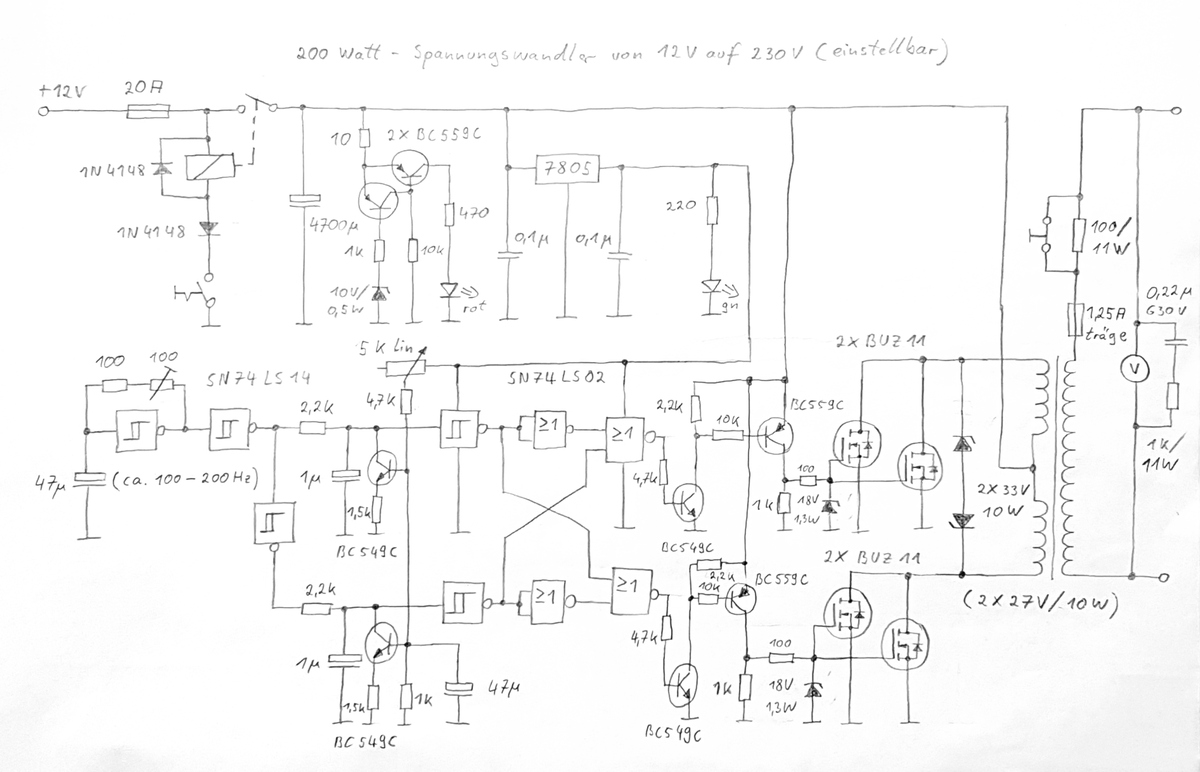 200 Watt - Spannungswandler von 12V auf 230V (einstellbar)
+12V
20A
1N4148
1N4148
4700µ
10
2X BC559C
1K
10K
470
10V/
0,5W
rot
7805
0,1µ
0,1µ
220
gn
100/
11W
1,25A
träge
0,22µ
630V
V
1K/
11W
5K Lin
4,7K
100
100
SN74LS14
SN74LS02
47µ
(ca. 100-200Hz)
2,2K
1µ
1,5K
BC549C
≥1
≥1
2,2K
10K
BC559C
4,7K
BC549C
1K
100
18V
1,3W
2X BUZ11
2X 33V
10W
(2X27V/10W)
2,2K
1µ
1,5K
BC549C
1K
47µ
≥1
≥1
4,7K
2,2K
10K
BC559C
BC549C
1K
100
18V
1,3W
2X BUZ11